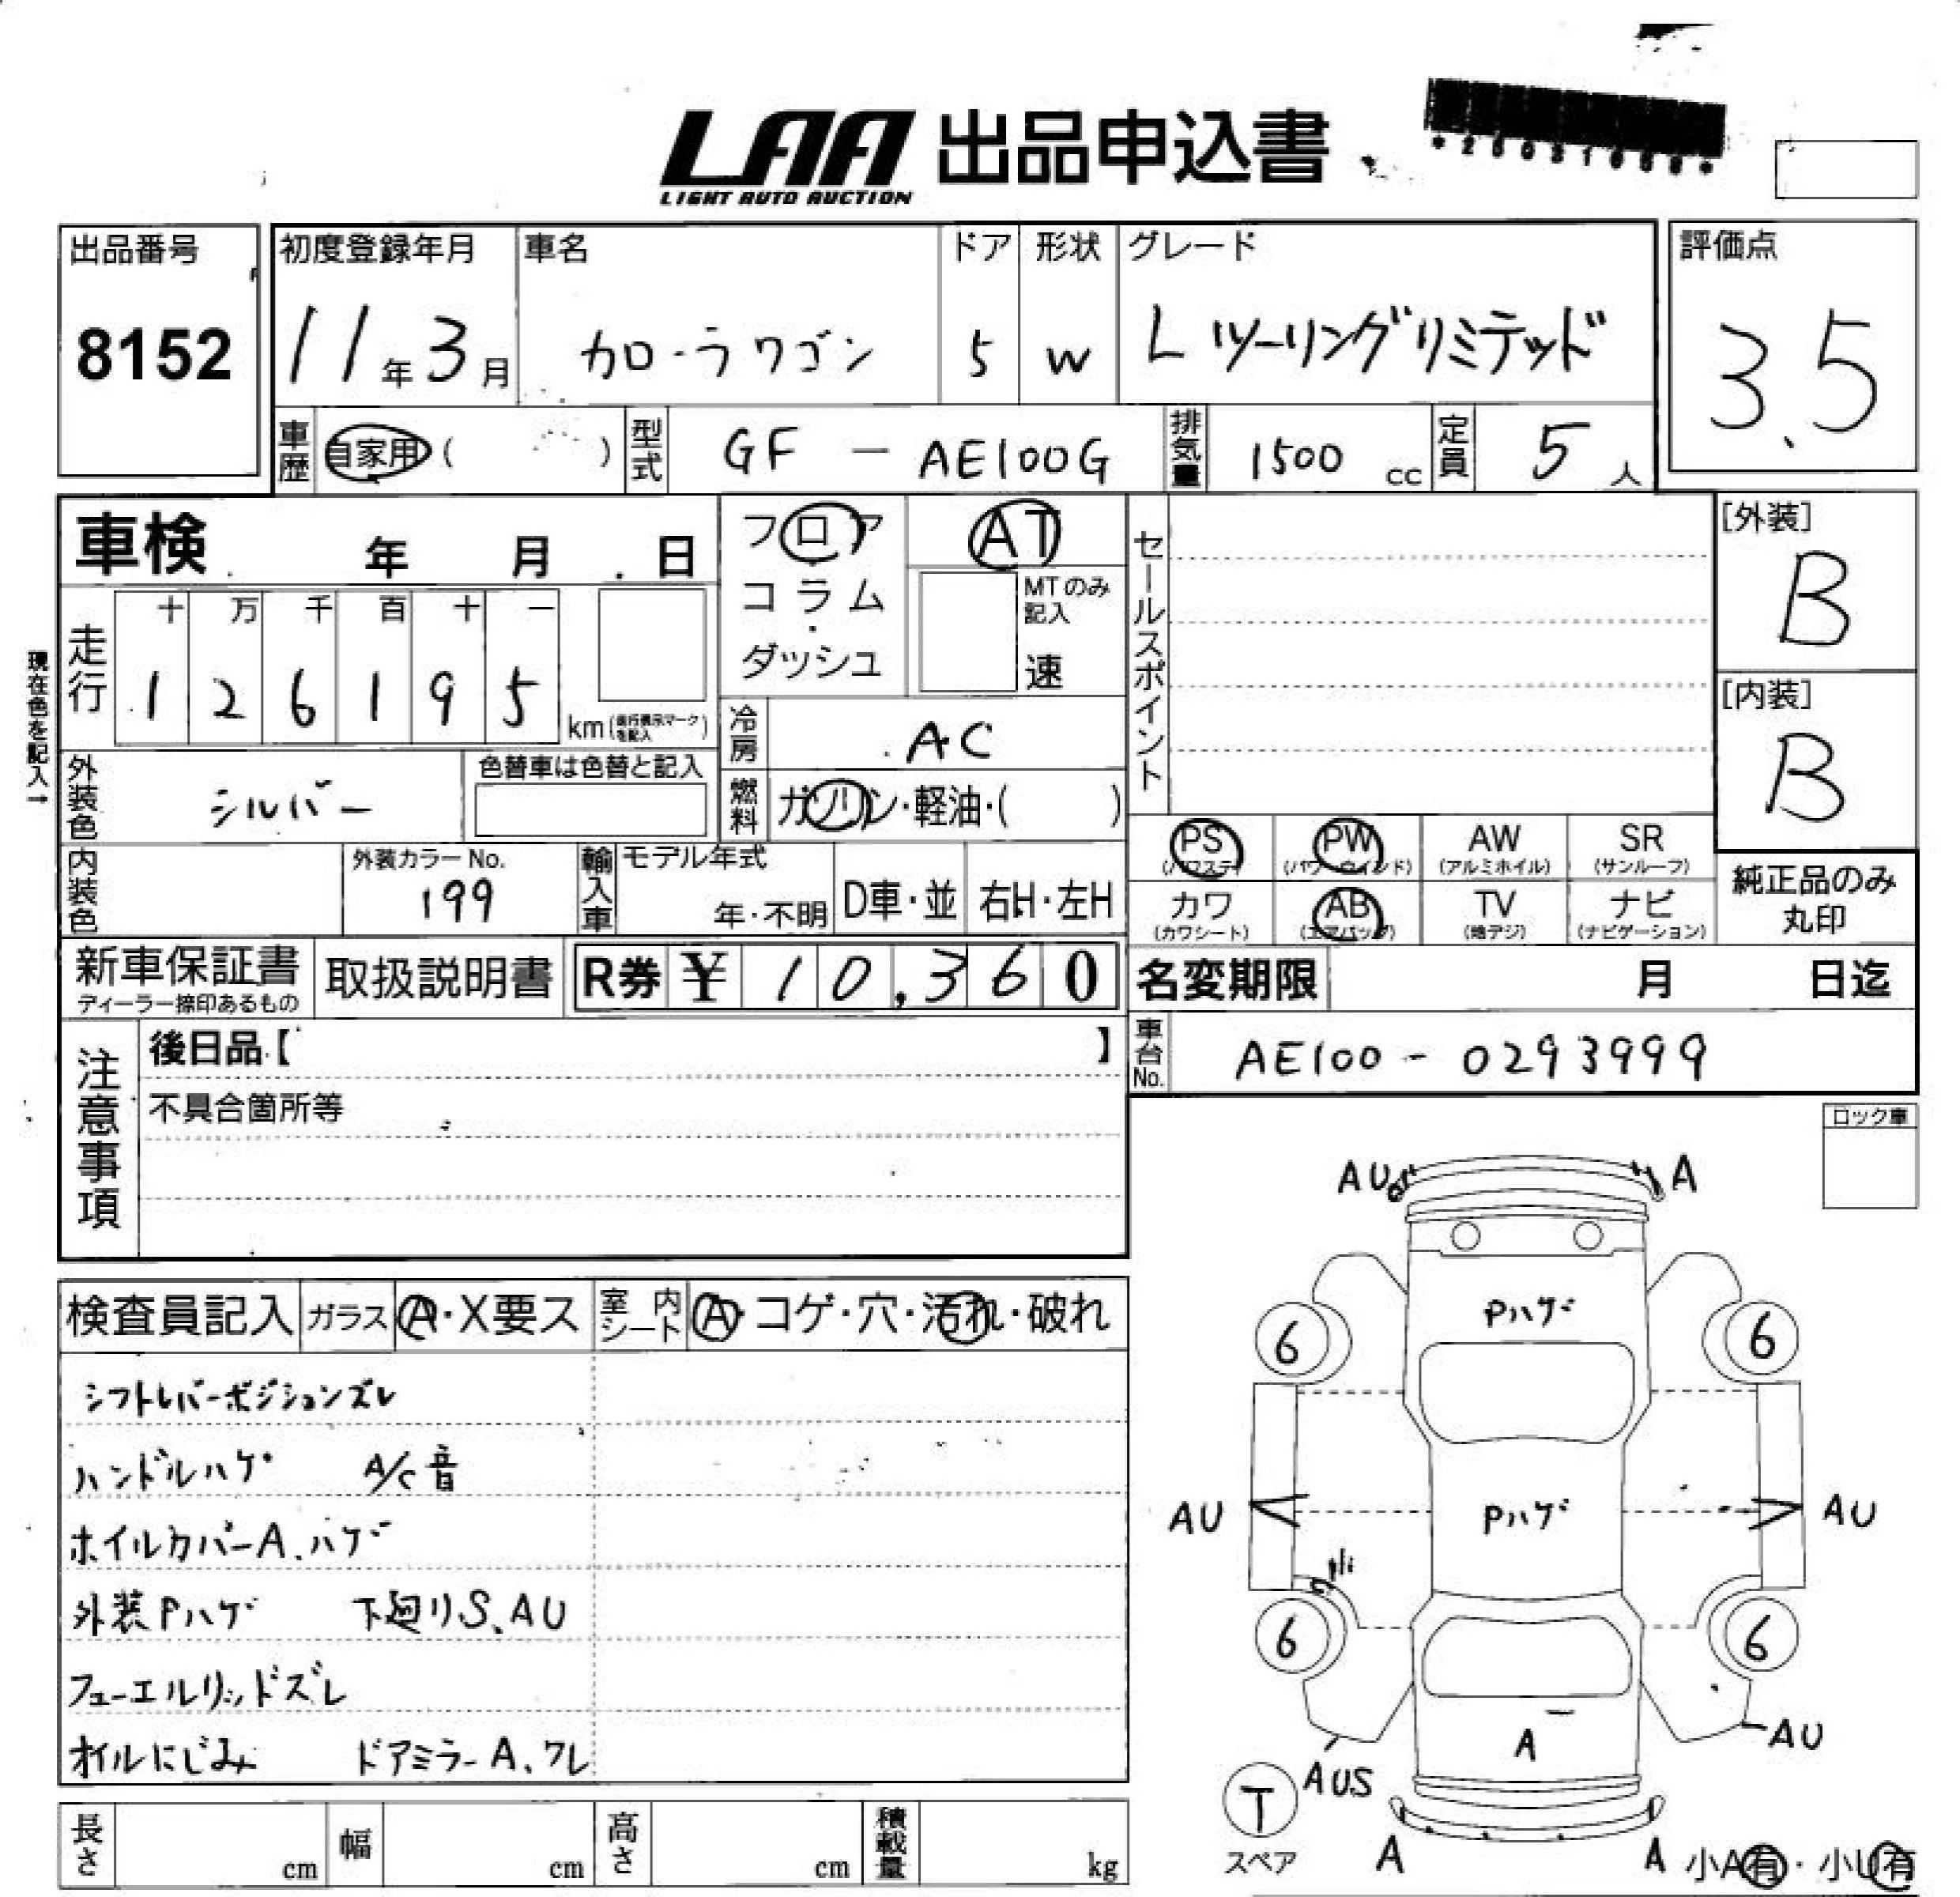 LAA 出品申込書
LIGHT AUTO AUCTION
出品番号 初度登録年月 車名 ドア 形状 グレード 評価点
8152 11年3月 カローラワゴン 5 W Lツーリングリミテッド 3.5
車歴 自家用( ) 型式 GF - AE100G 排気量 1500 cc 定員 5 人
車検 年 月 日 フロア AT セールスポイント [外装]
コラム MTのみ記入 B
ダッシュ 速
現在色を記入→
走行 十 万 千 百 十 一
1 2 6 1 9 5 km(走行表示マークを記入) [内装]
冷房 AC B
外装色 シルバー 色替車は色替と記入 燃料 ガソリン・軽油・( )
PS (パワステ) PW (パワーウインド) AW (アルミホイル) SR (サンルーフ)
内装色 外装カラーNo. 199 輸入車 モデル年式 年・不明 D車・並 右H・左H
カワ (カワシート) AB (エアバッグ) TV (地デジ) ナビ (ナビゲーション) 純正品のみ丸印
新車保証書 取扱説明書 R券 ¥ 10,360 名変期限 月 日迄
ディーラー捺印あるもの
注意事項 後日品【 】 車台No. AE100 - 0293999
不具合箇所等
ロック車
AU A
検査員記入 ガラス A・X要ス 室内シート A・コゲ・穴・汚れ・破れ
Pハゲ
6 6
シフトレバーポジションズレ
ハンドルハゲ A/C音
AU Pハゲ AU
ホイルカバーA.ハゲ
外装Pハゲ 下廻りS.AU
6 6
フューエルリッドズレ
オイルにじみ ドアミラーA.ワレ
A AU
T AUS
スペア A A 小A有・小U有
長さ cm 幅 cm 高さ cm 積載量 kg